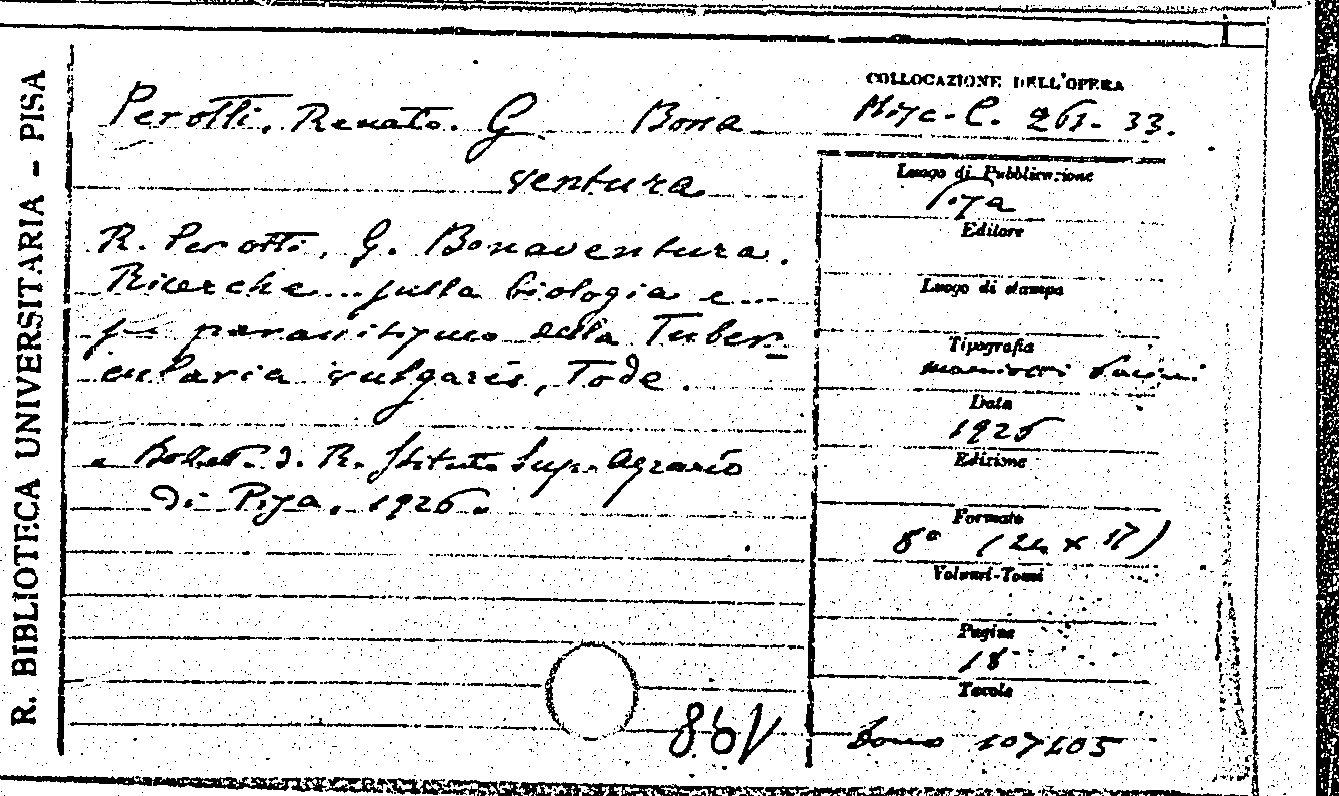 R. BIBLIOTECA UNIVERSITARIA - PISA
Perotti, Renato. G. Bona
ventura
R. Perotti, G. Bonaventura.
Ricerche... sulla biologia e...
parassitismo della Tuber-
cularia vulgaris, Tode.
Bollet. d. R. Istituto Sup. Agrario
di Pisa. 1926.
86V
COLLOCAZIONE DELL'OPERA
Misc. C. 261. 33.
Luogo di Pubblicazione
Pisa
Editore
Luogo di stampa
Tipografia
Mariotti Pacini
Data
1926
Edizione
Formato
8° (24 x 17)
Volumi-Tomi
Pagine
18
Tavole
Dono 107105